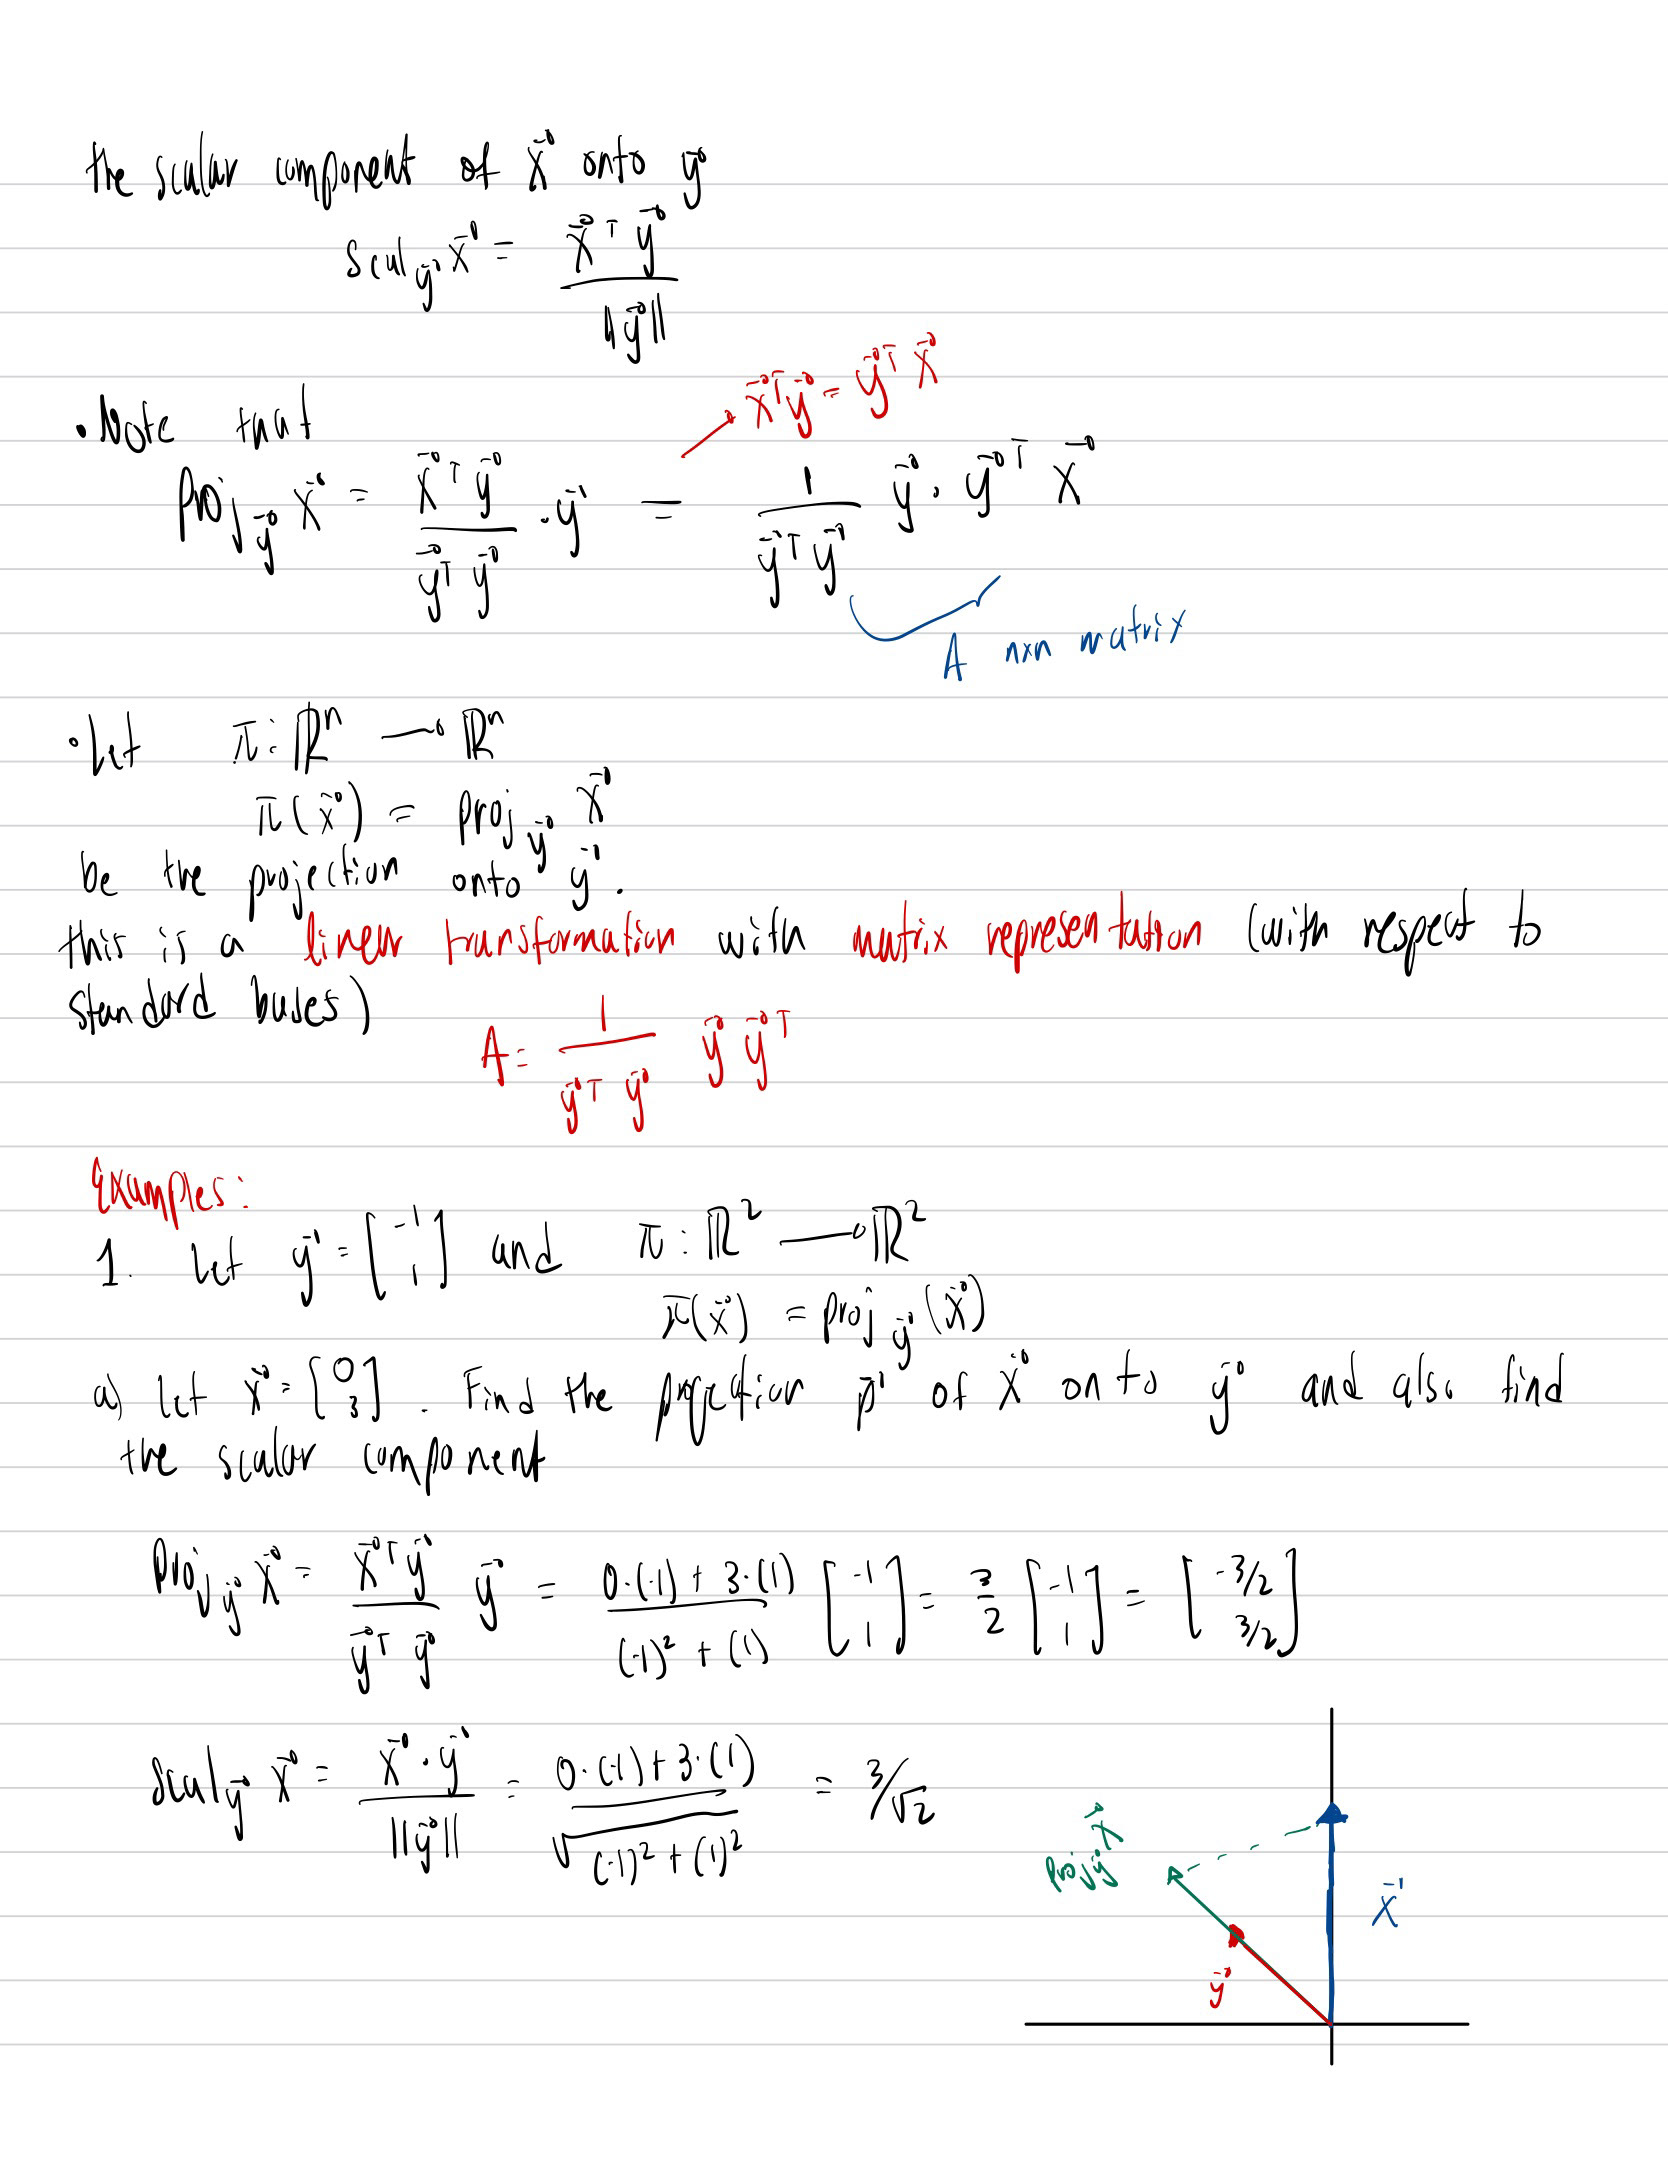 the scalar component of x⃗ onto y⃗
scal_y⃗ x⃗ = x⃗ᵀ y⃗ / ||y⃗||
x⃗ᵀy⃗ = y⃗ᵀ x⃗
• Note that
Proj_y⃗ x⃗ = (x⃗ᵀ y⃗ / y⃗ᵀ y⃗) · y⃗ = (1 / y⃗ᵀ y⃗) y⃗ · y⃗ᵀ x⃗
A nxn matrix
• Let π: ℝⁿ → ℝⁿ
π(x⃗) = proj_y⃗ x⃗
be the projection onto y⃗.
this is a linear transformation with matrix representation (with respect to
standard bases)
A = (1 / y⃗ᵀ y⃗) y⃗ y⃗ᵀ
Examples:
1. Let y⃗ = [-1 1] and π: ℝ² → ℝ²
π(x⃗) = proj_y⃗ (x⃗)
a) Let x⃗ = [0 3]. Find the projection p⃗ of x⃗ onto y⃗ and also find
the scalar component
Proj_y⃗ x⃗ = (x⃗ᵀ y⃗ / y⃗ᵀ y⃗) y⃗ = (0·(-1) + 3·(1)) / ((-1)² + (1)) [-1 1] = 3/2 [-1 1] = [-3/2 3/2]
scal_y⃗ x⃗ = x⃗ · y⃗ / ||y⃗|| = (0·(-1) + 3·(1)) / √((-1)² + (1)²) = 3/√2
proj_y⃗ x⃗
x⃗
y⃗